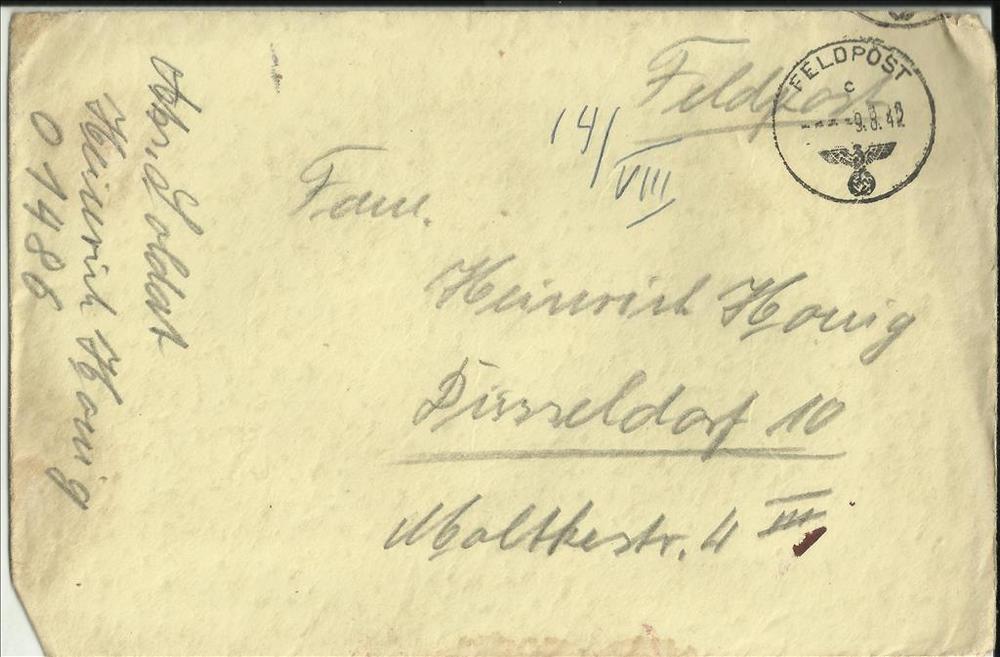 Feldpost
FELDPOST
c
-9.8.42
14/
VIII
Fam.
Heinrich Honig
Düsseldorf 10
Moltkestr. 4 III
Abs. Soldat
Heinrich Honig
01486